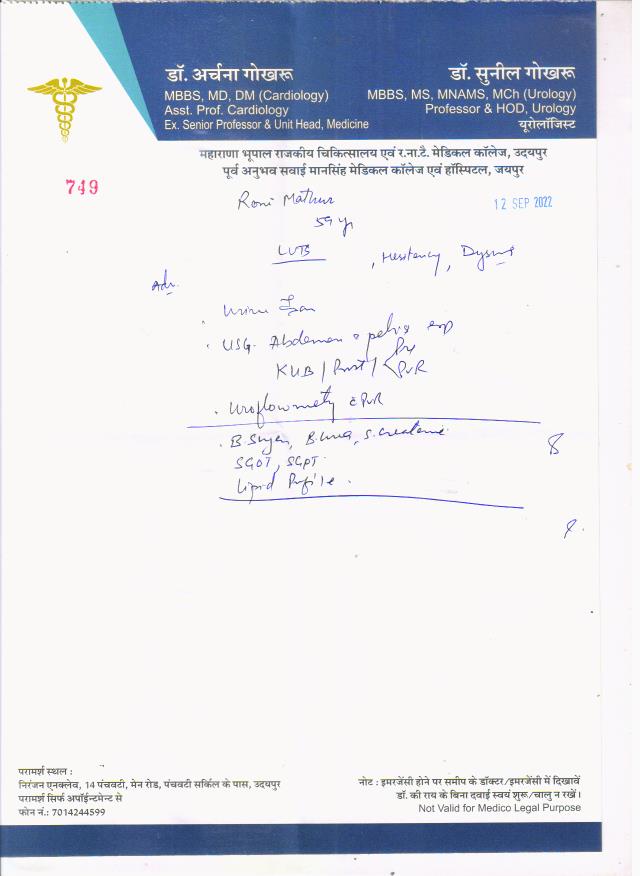 डॉ. अर्चना गोखरू
MBBS, MD, DM (Cardiology)
Asst. Prof. Cardiology
Ex. Senior Professor & Unit Head, Medicine
डॉ. सुनील गोखरू
MBBS, MS, MNAMS, MCh (Urology)
Professor & HOD, Urology
यूरोलॉजिस्ट
महाराणा भूपाल राजकीय चिकित्सालय एवं र.ना.टै. मेडिकल कॉलेज, उदयपुर
पूर्व अनुभव सवाई मानसिंह मेडिकल कॉलेज एवं हॉस्पिटल, जयपुर
749
Roni Mathur
12 SEP 2022
59 yr
LUTS
, Hesitency,
Adv.
Urine
USG. Abdomen pelvis
KUB / Prost / Pre
PVR
Uroflowmetry c PVR
B. Sugar, B. Urea, S. Creatinine
SGOT, SGPT
Lipid Profile.
परामर्श स्थल :
निरंजन एनक्लेव, 14 पंचवटी, मेन रोड, पंचवटी सर्किल के पास, उदयपुर
परामर्श सिर्फ अपॉईन्टमेन्ट से
फोन नं.: 7014244599
नोट : इमरजेंसी होने पर समीप के डॉक्टर/इमरजेंसी में दिखावें
डॉ. की राय के बिना दवाई स्वयं शुरू/चालु न रखें।
Not Valid for Medico Legal Purpose